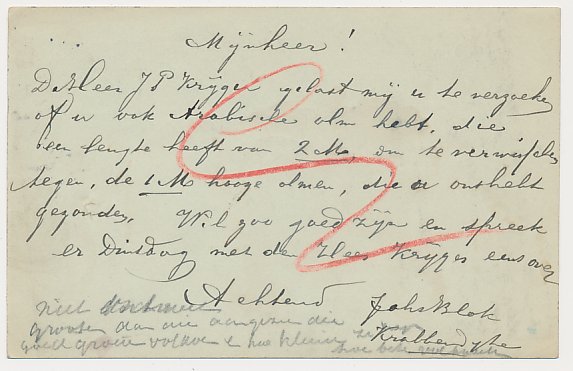 Mijnheer!
De Heer J P Krijger gelast mij u te verzoeken
of u ook Arabische olm hebt, die
een lengte heeft van 2 M, om te verwisselen
tegen, de 1 M hooge olmen, die u onthebt
gezonden, Wil zoo goed zijn en spreek
er Dinsdag met den Heer Krijger eens over
Achtend Johs Blok
Krabbendijke
niet
grooter dan die aangezien die
goed groeie voldoen & hoe kleiner